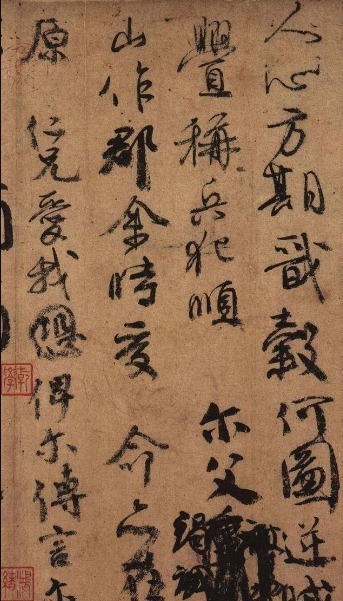 人心方期戩穀何圖逆賊
釁稱兵犯順 尔父竭誠
山作郡余時受 命亦在
原 仁兄愛我俾尔傳言尔